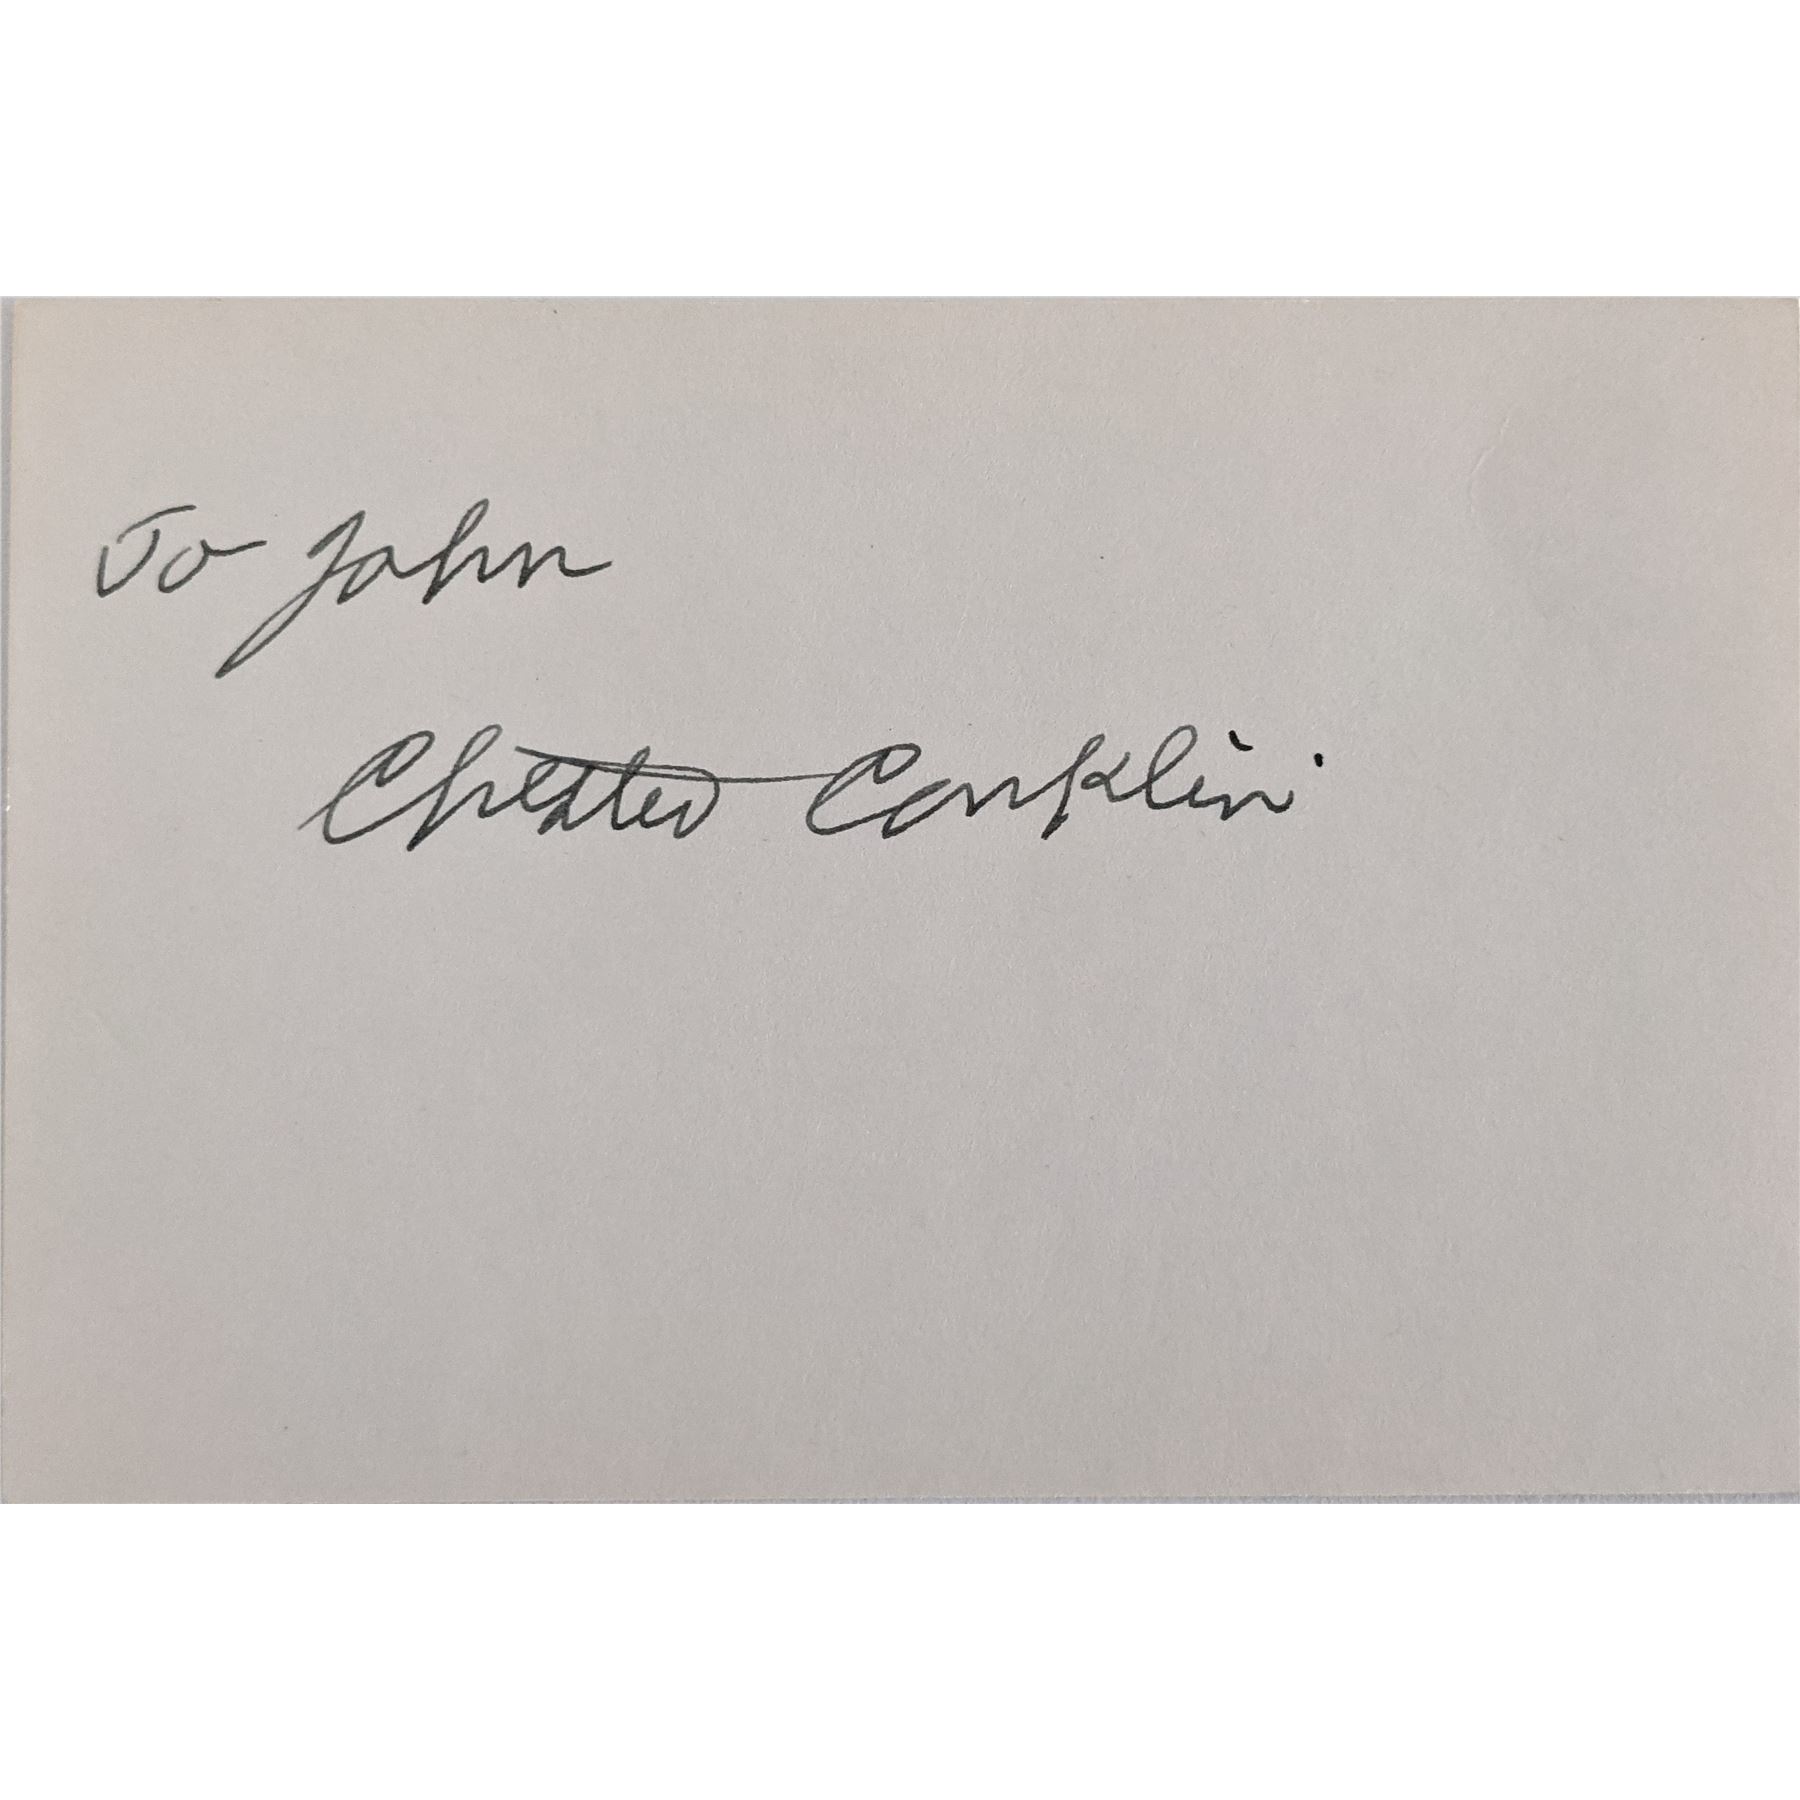 To John
Chester Conklin